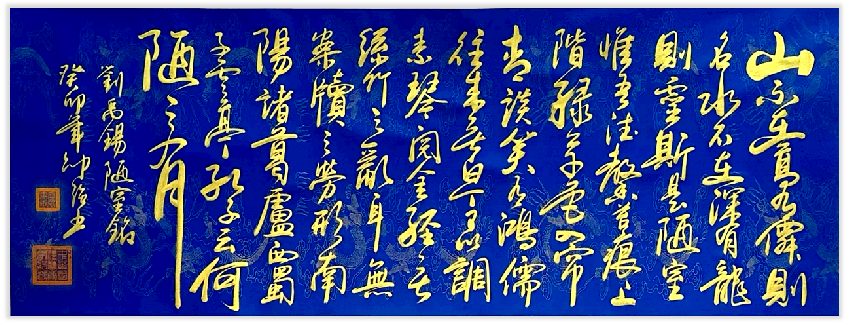 山不在高有僊則
名水不在深有龍
則靈斯是陋室
惟吾德馨苔痕上
階緑草色入帘
青談笑有鴻儒
往来無白丁可以調
素琴閱金經無
絲竹之亂耳無
案牘之勞形南
陽諸葛廬西蜀
子雲亭孔子云何
陋之有
劉禹錫陋室銘
癸卯年坤书